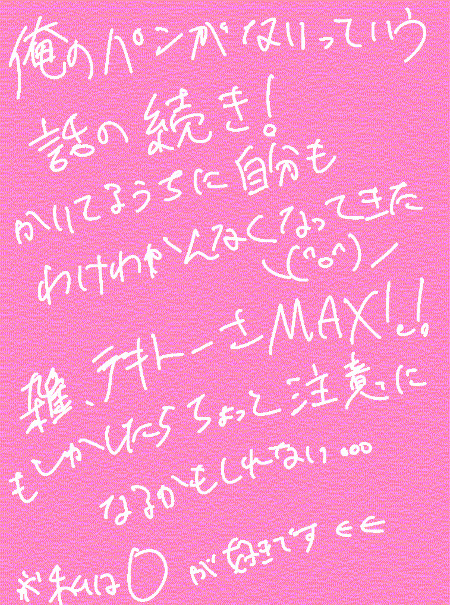 俺のペンがないっていう
話の続き!
かいてるうちに自分も
わけわかんなくなってきた
\(^o^)/
雑、テキトーさMAX!!
もしかしたらちょっと注意に
なるかもしれない...
※私は〇が好きです